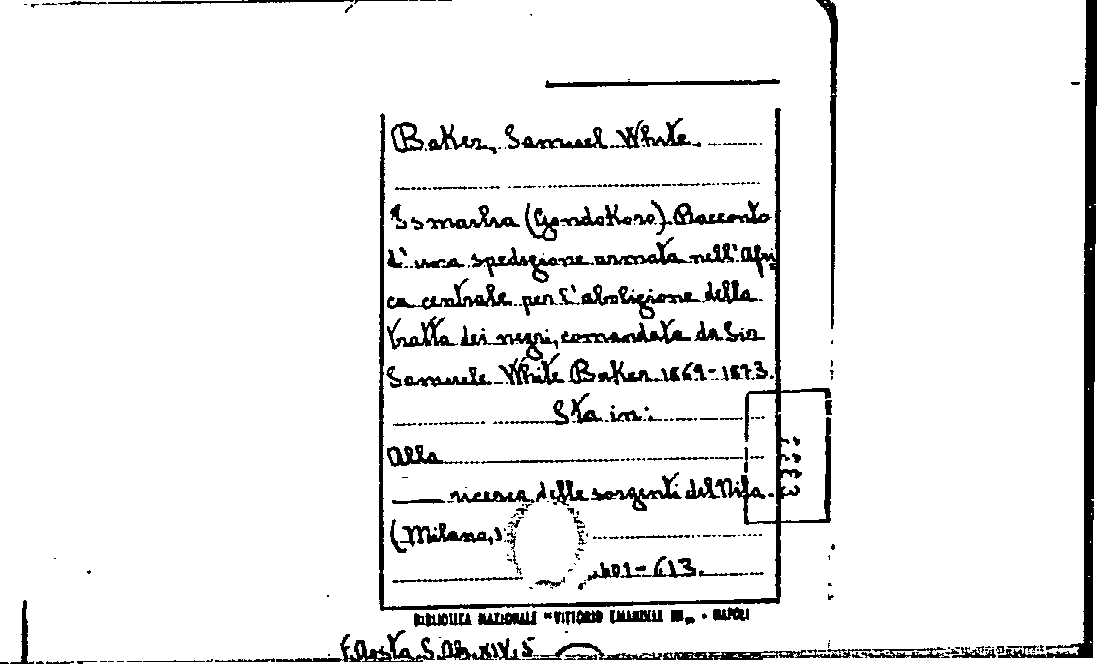 Baker, Samuel White.
Ismailia (Gondokoro). Racconto
d'una spedizione armata nell'Afri
ca centrale per l'abolizione della
tratta dei negri, comandata da Sir
Samuele White Baker 1869-1873.
Sta in:
Alla
ricerca delle sorgenti del Nilo.
(Milano,
401-613.
BIBLIOTECA NAZIONALE "VITTORIO EMANUELE III" - NAPOLI
F. Aosta S. Afr. XIV. 5